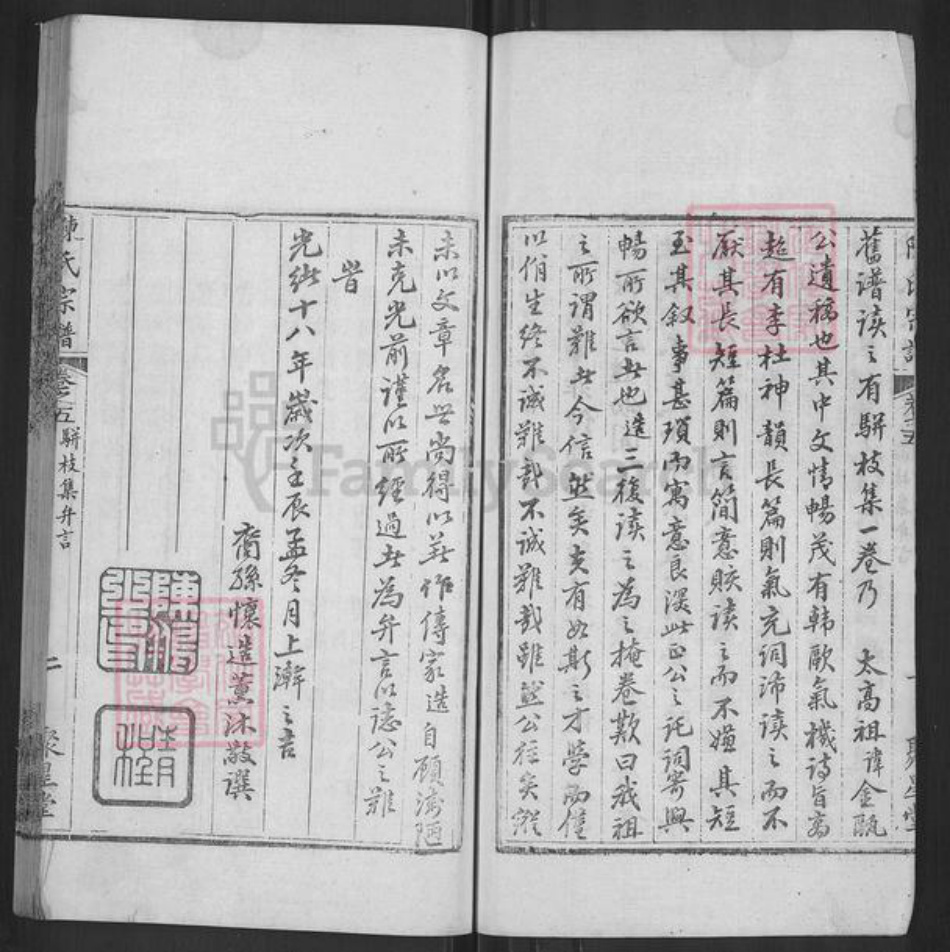 陳氏宗譜 卷之五 一 聚星堂
舊譜讀之有駢枝集一卷乃 太高祖諱金甌
公遺稿也其中文情暢茂有韓歐氣機詩旨高
超有李杜神韻長篇則氣充詞沛讀之而不
厭其長短篇則言簡意賅讀之而不嫌其短
至其叙事甚瑣而寓意良深此正公之託詞寄興
暢所欲言者也造三復讀之為之掩卷歎曰我祖
之所謂難者今信然矣夫有如斯之才學而僅
以俏生終不誠難哉不誠難哉雖然公往矣縱
未以文章名世尚得以著作傳家造自顧淺陋
未克光前謹以所經過者為弁言以誌公之難
旹
光緒十八年歲次壬辰孟冬月上澣之吉
裔孫懷造薰沐敬選
陳氏宗譜 卷之五 駢枝集弁言 二 聚星堂
FamilySearch